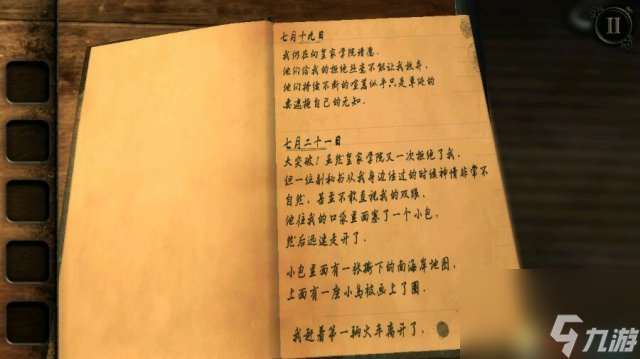 七月十九日
我仍在向皇家学院请愿.
他们给我的拒绝丝毫不能让我放弃,
他们持续不断的喧嚣似乎只是单纯的
要遮掩自己的无知.
七月二十一日
大突破！虽然皇家学院又一次拒绝了我,
但一位副秘书从我身边经过的时候神情非常不
自然, 甚至不敢直视我的双眼.
他往我的口袋里面塞了一个小包.
然后迅速走开了.
小包里面有一张撕下的南海岸地图,
上面有一座小岛被画上了圈.
我趁着第一辆火车离开了.
九游